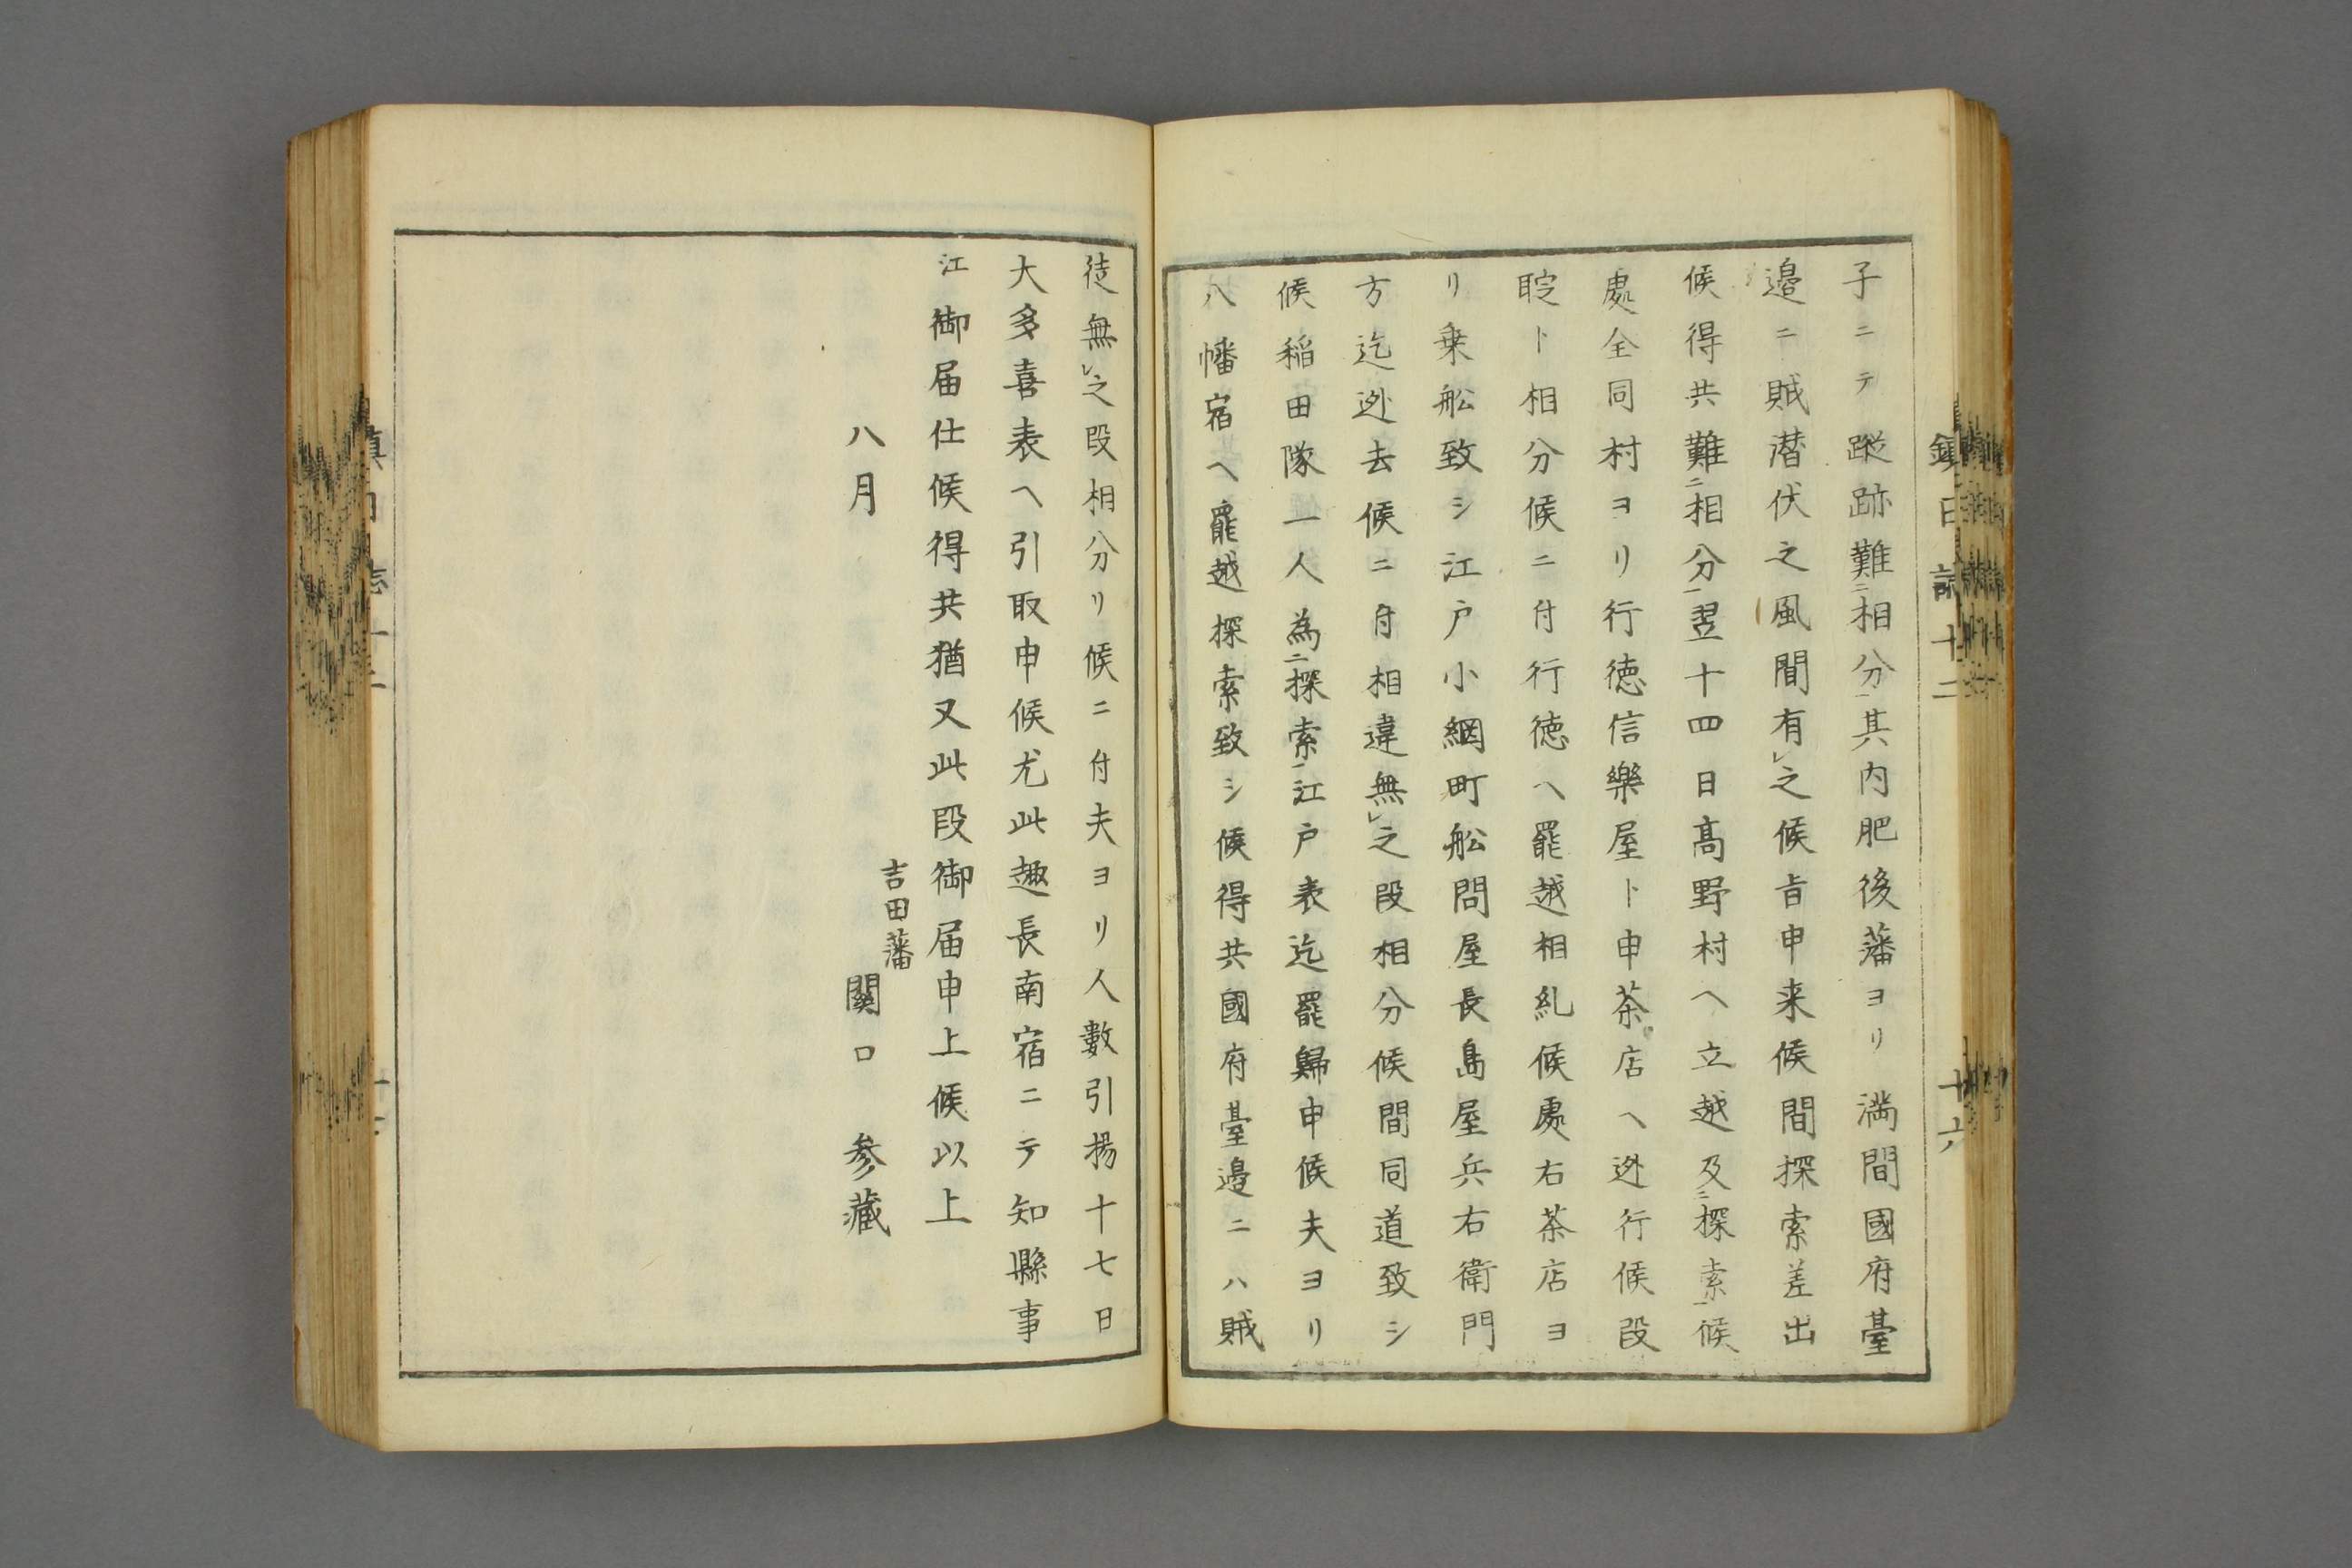 子ニテ蹤跡難二相分一其内肥後藩ヨリ満間國府臺
邉ニ賊潜伏之風聞有レ之候旨申来候間探索差出
候得共難二相分一翌十四日髙野村ヘ立越及二探索一候
處全同村ヨリ行徳信樂屋ト申茶店ヘ迯行候段
聢ト相分候ニ付行徳ヘ罷越相糺候處右茶店ヨ
リ乗舩致シ江戸小網町舩問屋長島屋兵右衛門
方迄迯去候ニ付相違無レ之段相分候間同道致シ
候稲田隊一人為二探索一江戸表迄罷歸申候夫ヨリ
八幡宿ヘ罷越探索致シ候得共國府臺邉ニハ賊
徒無レ之段相分リ候ニ付夫ヨリ人數引揚十七日
大多喜表ヘ引取申候尤此趣長南宿ニテ知縣事
江御届仕候得共猶又此段御届申上候以上
八月
吉田藩
關口 参藏
十六